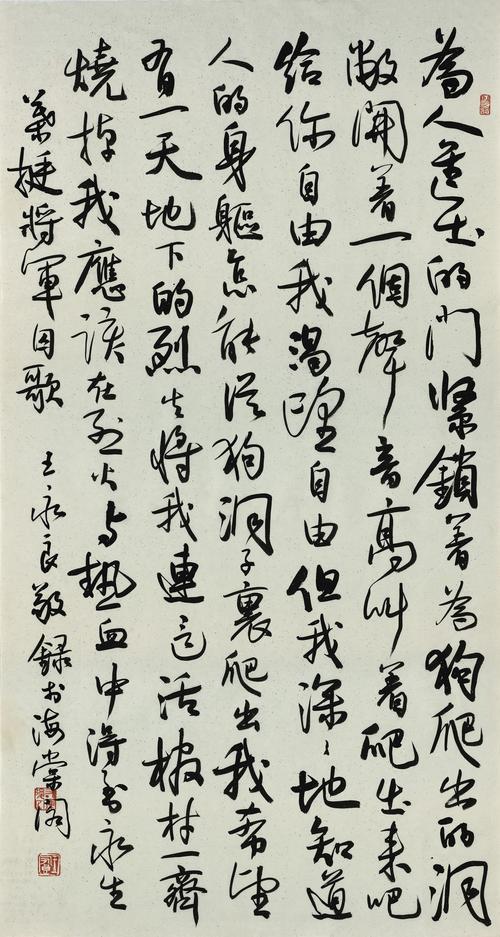 為人進出的門緊鎖著為狗爬出的洞
敞開著一個聲音高叫著爬出来吧
給你自由我渴望自由但我深〻地知道
人的身軀怎能從狗洞子裏爬出我希望
有一天地下的烈火將我連這活棺材一齊
燒掉我應該在烈火与熱血中得到永生
葉挺將軍囚歌 王永良敬録於海棠閣